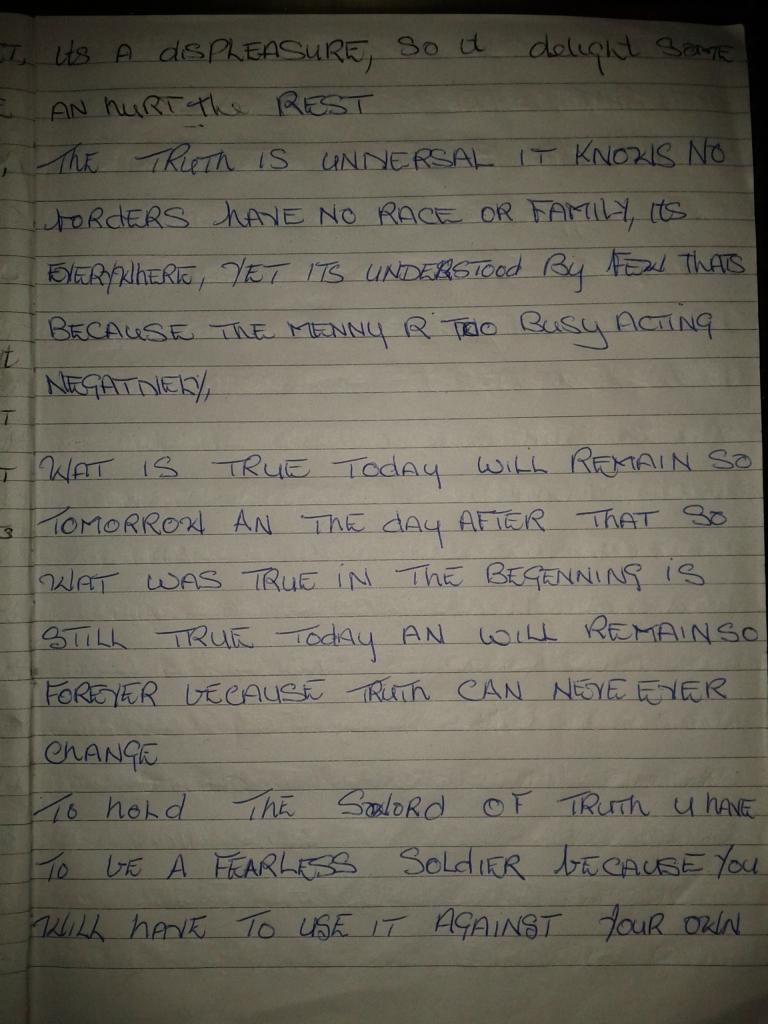 T, ITS A dISPLEASURE, SO it delight SOME
AN hURT the REST
THE TRUTH IS UNIVERSAL IT KNOWS NO
bORdERS hAVE NO RACE OR FAMILY, ITS
EVERYWhERE, YET ITS UNDERSTOOd By FEW THATS
BECAUSE THE MENNY R TOO BUSY ACTING
NEGATIVELY,
WAT IS TRUE TOdAY WILL REMAIN SO
TOMORROW AN THE dAY AFTER THAT SO
WAT WAS TRUE IN THE BEGENNING IS
STILL TRUE TOdAY AN WILL REMAIN SO
FOREVER bECAUSE TRUTh CAN NEVE EVER
ChANGE
TO hOLd THE SWORd OF TRUTh U hAVE
TO bE A FEARLESS SOLdIER bECAUSE YOU
WILL hAVE TO USE IT AGAINST YOUR OWN